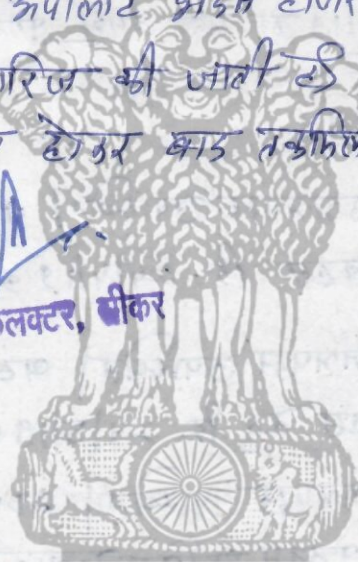 अपीलांट
रिज की जाती है
होकर बाद तकमिल
लक्टर, सीकर